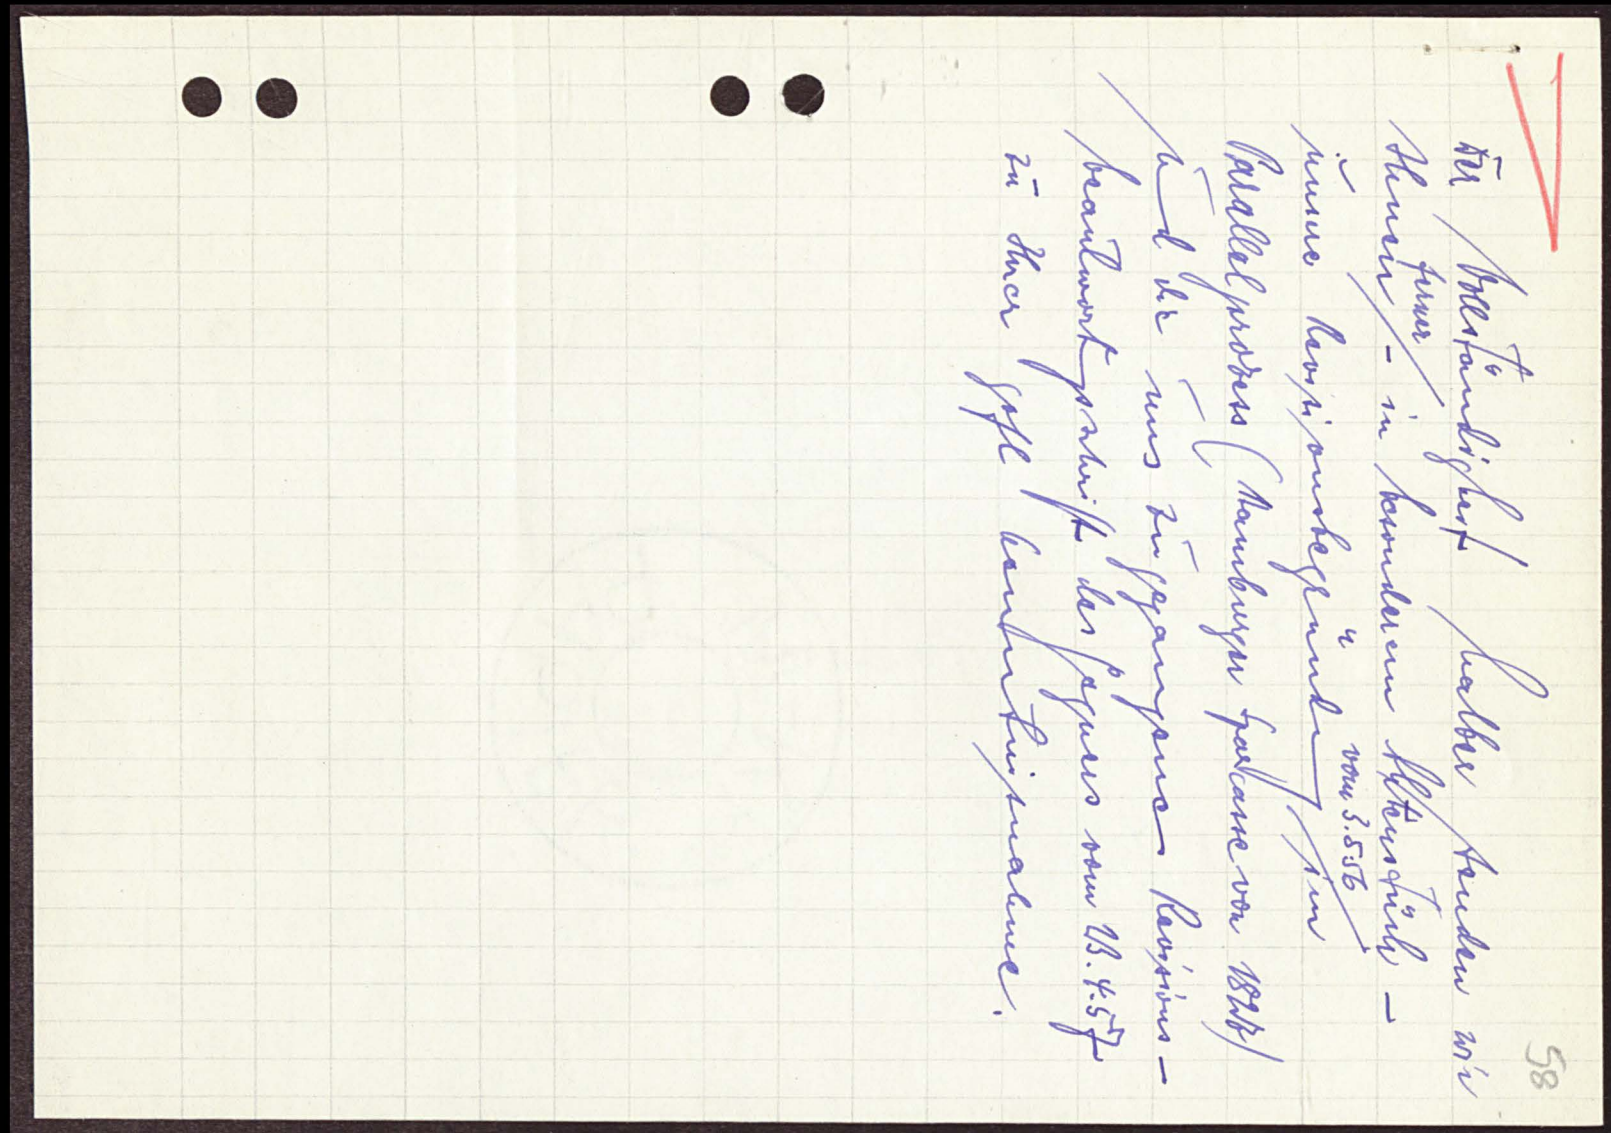 58
Der Vollständigkeit halber senden wir
Ihnen ferner - in besonderem Aktenstück -
unsere Revisionsbegründung vom 3.5.56 im
Parallelprozess (Hamburger Sparcasse von 1827)
und die uns zugegangene Revisions-
beantwortungsschrift des Gegners vom 23.4.57
zu Ihrer gefl. Kenntnisnahme.